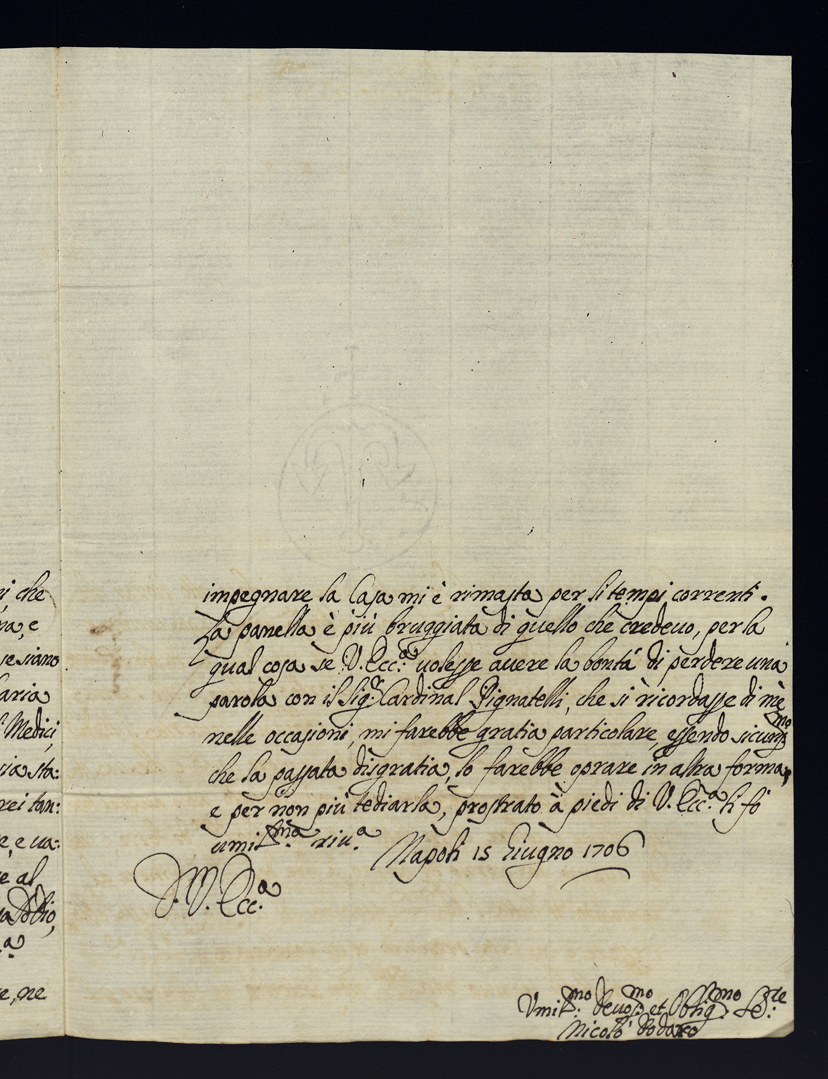 i che
na, e
se siano
laria
i Medici,
sia sta:
rei tan:
e, e ua:
e al
.a
e, ne
impegnare la Casa mi è rimasta per li tempi correnti.
La panella è più bruggiata di quello che credeuo, per la
qual cosa se V. Ecc.a uolesse auere la bontá di perdere una
parola con il Sig.r Cardinal Pignatelli, che si ricordasse di mè
nelle occasioni, mi farebbe gratia particolare, essendo sicuriss.mo
che la passata disgratia, lo farebbe oprare in altra forma,
e per non più tediarla, prostrato à piedi di V. Ecc.a li fò
umiliss.ma riu.a Napoli 15 Giugno 1706
D. V. Ecc.a
Vmiliss.mo deuotiss.mo et Obligatiss.mo Se.re
Nicolò